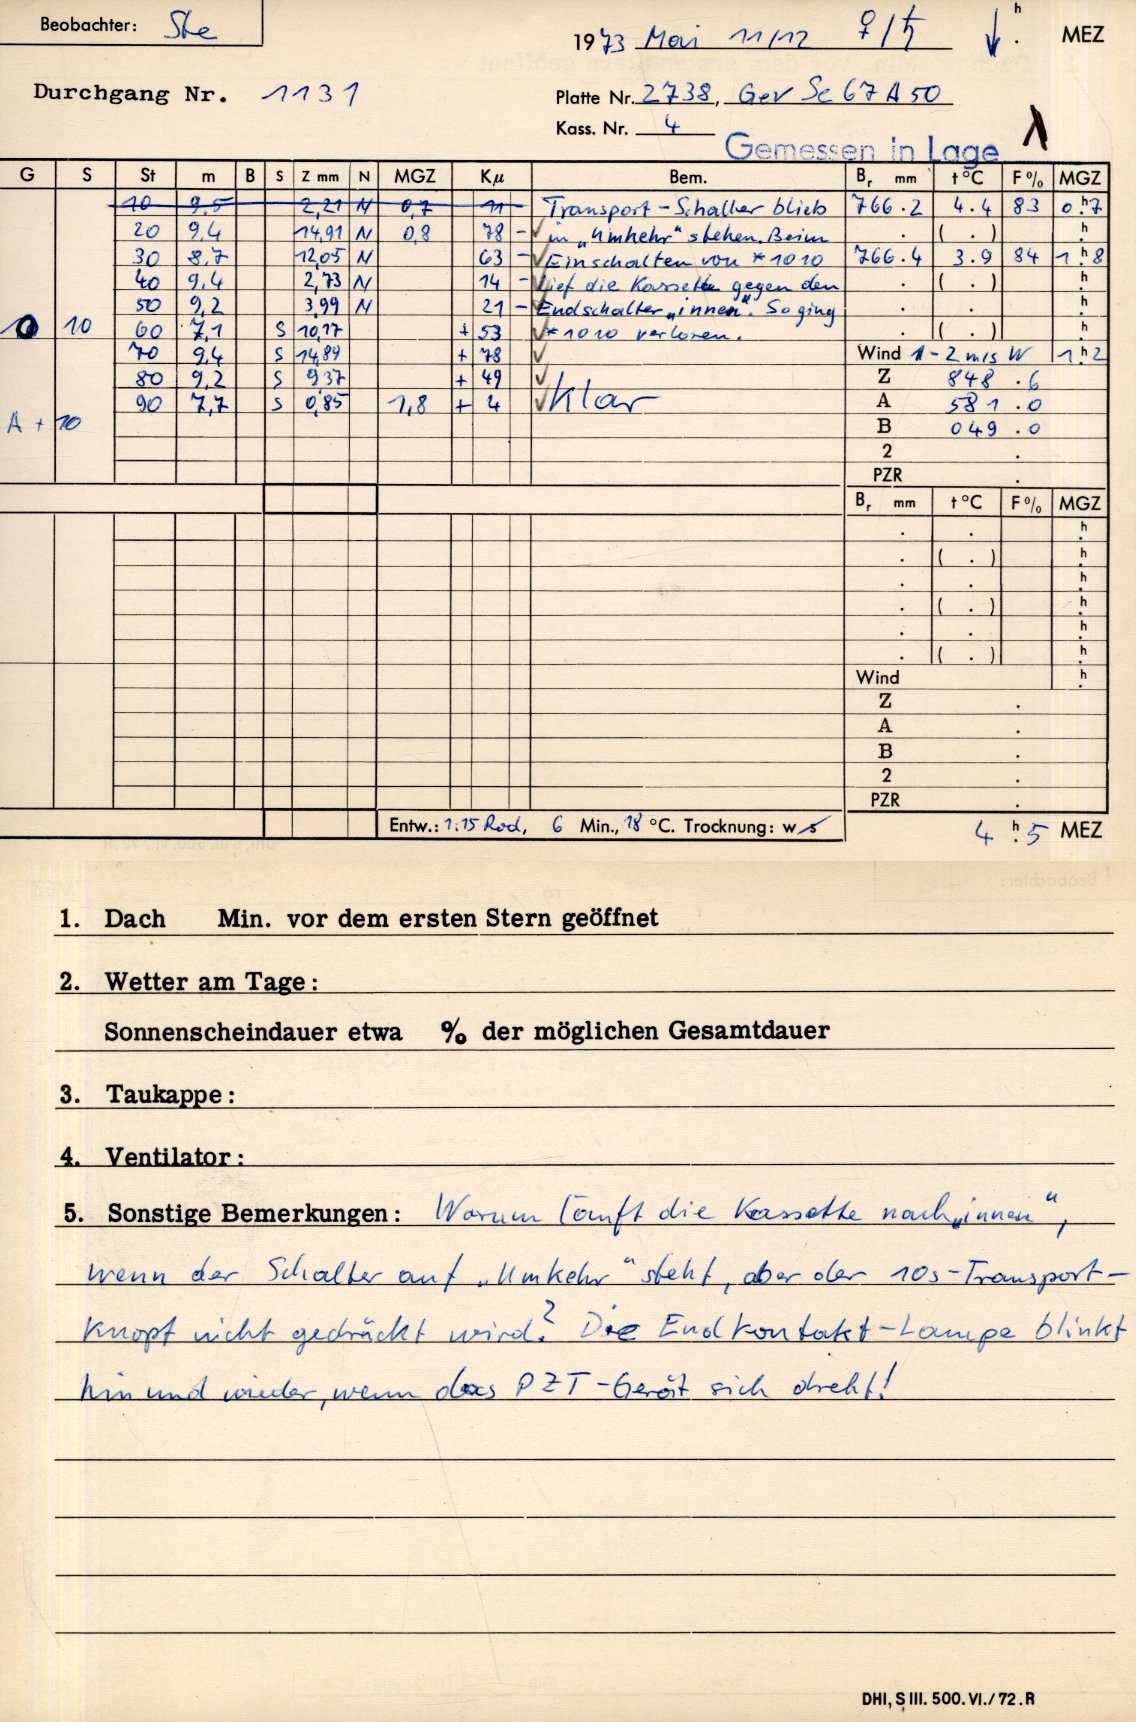 Beobachter: Ste
1973 Mai 11/12 ♀/♄ ↓ h . MEZ
Durchgang Nr. 1131
Platte Nr. 2738, Gev Sc 67 A 50
Kass. Nr. 4
Gemessen in Lage
G S St m B S Z mm N MGZ Kμ Bem. Br mm t °C F % MGZ
10 9,5 2,21 N 0,7 11 Transport-Schalter blieb 766.2 4.4 83 0h.7
20 9,4 14,91 N 0,8 78 - ✓ in „Umkehr" stehen. Beim . ( . ) h.
30 8,7 12,05 N 63 - ✓ Einschalten von *1010 766.4 3.9 84 1h.8
40 9,4 2,73 N 14 - ✓ lief die Kassette gegen den . ( . ) h.
50 9,2 3,99 N 21 - ✓ Endschalter „innen". So ging . . h.
0 10 60 7,1 S 10,17 + 53 ✓ *1010 verloren. . ( . ) h.
70 9,4 S 14,89 + 78 ✓ Wind 1-2 m/s W 1h.2
80 9,2 S 9,37 + 49 ✓ Z 848.6
90 7,7 S 0,85 1,8 + 4 ✓ Klar A 581.0
A + 10 B 049.0
2 .
PZR .
Br mm t °C F % MGZ
. . h.
. ( . ) h.
. . h.
. ( . ) h.
. . h.
. ( . ) h.
Wind h.
Z .
A .
B .
2 .
PZR .
Entw.: 1:15 Rod, 6 Min., 18 °C. Trocknung: w/s
4 h. 5 MEZ
1. Dach Min. vor dem ersten Stern geöffnet
2. Wetter am Tage:
Sonnenscheindauer etwa % der möglichen Gesamtdauer
3. Taukappe:
4. Ventilator:
5. Sonstige Bemerkungen: Warum läuft die Kassette nach „innen",
wenn der Schalter auf „Umkehr" steht, aber der 10s-Transport-
Knopf nicht gedrückt wird? Die Endkontakt-Lampe blinkt
hin und wieder, wenn das PZT-Gerät sich dreht!
DHI, S III. 500. VI./72. R